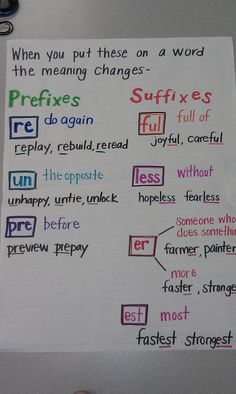 When you put these on a word
the meaning changes-
Prefixes
re do again
replay, rebuild, reread
un the opposite
unhappy, untie, unlock
pre before
preview prepay
Suffixes
ful full of
joyful, careful
less without
hopeless fearless
er someone who
does somethin
farmer, painter
more
faster, stronge
est most
fastest strongest